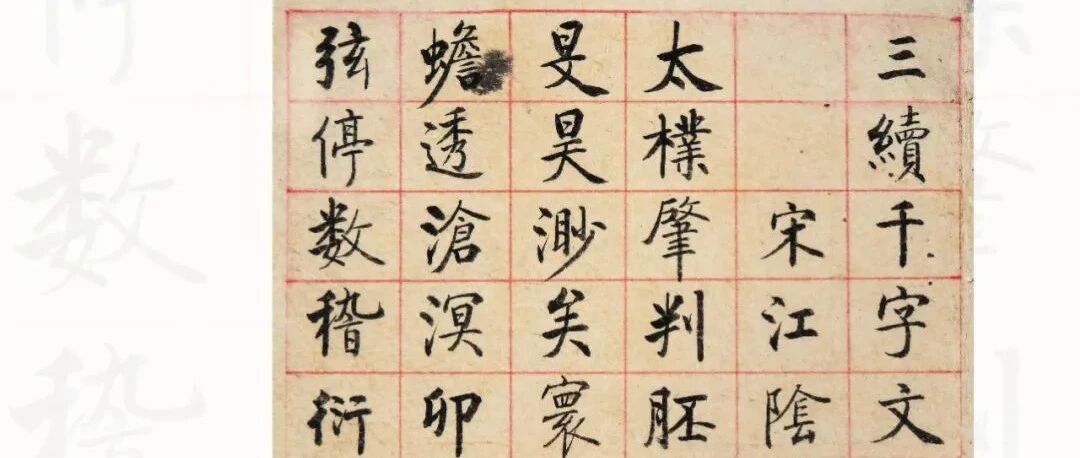 三續千字文
宋江陰
太樸肇判胚
旻昊渺矣寰
蟾透滄溟卯
弦停数稽衍